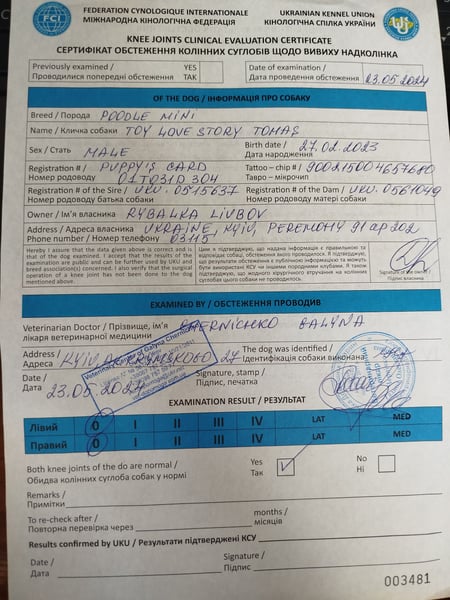 FEDERATION CYNOLOGIQUE INTERNATIONALE
МІЖНАРОДНА КІНОЛОГІЧНА ФЕДЕРАЦІЯ
UKRAINIAN KENNEL UNION
КІНОЛОГІЧНА СПІЛКА УКРАЇНИ
FCI
KNEE JOINTS CLINICAL EVALUATION CERTIFICATE
СЕРТИФІКАТ ОБСТЕЖЕННЯ КОЛІННИХ СУГЛОБІВ ЩОДО ВИВИХУ НАДКОЛІНКА
Previously examined / YES
Проводилися попередні обстеження ТАК
Date of examination /
Дата проведення обстеження 23.05.2024
OF THE DOG / ІНФОРМАЦІЯ ПРО СОБАКУ
Breed / Порода POODLE MINI
Name / Кличка собаки TOY LOVE STORY TOMAS
Sex / Стать MALE
Birth date / 27.02.2023
Дата народження
Registration # / PUPPY'S CARD
Номер родоводу 01T031D304
Tattoo – chip # / 900215004657680
Тавро – мікрочип
Registration # of the Sire / UKU. 0515637
Номер родоводу батька собаки
Registration # of the Dam / UKU. 0561049
Номер родоводу матері собаки
Owner / Ім'я власника RYBALKA LIUBOV
Address / UKRAINE, KYIV, PEREMOHY 91 ap 202
Адреса власника
Phone number / Номер телефону 03115
Hereby I assure that the data given above is correct and is that of the dog examined. I accept that the results of the examination are public and can be further used by UKU and breed association(s) concerned. I also verify that the surgical operation of a knee joint has not been done to the dog mentioned above.
Цим я підтверджую, що надана інформація є правильною та відповідає собаці, обстеження якого проводилося. Я підтверджую, що результати обстеження є публічною інформацією та можуть бути використані КСУ або іншими породними клубами. Я також підтверджую, що жодного хірургічного втручання на колінний суглоб цього собаки не проводилось.
Signature of the owner /
Підпис власника
EXAMINED BY / ОБСТЕЖЕННЯ ПРОВОДИВ
Veterinarian Doctor / Прізвище, ім'я CHERNICHKO GALYNA
лікаря ветеринарної медицини
Address / KYIV,
Адреса
The dog was identified /
Ідентифікація собаки виконана
Date /
Дата 23.05.2024
Signature, stamp /
Підпис, печатка
EXAMINATION RESULT / РЕЗУЛЬТАТ
Лівий 0 I II III IV LAT MED
Правий 0 I II III IV LAT MED
Both knee joints of the do are normal /
Обидва колінних суглоба собаки у нормі
Yes
Так
No
Ні
Remarks /
Примітки
To re-check after /
Повторна перевірка через
months /
місяців
Results confirmed by UKU / Результати підтверджені КСУ
Date /
Дата
Signature /
Підпис
003481